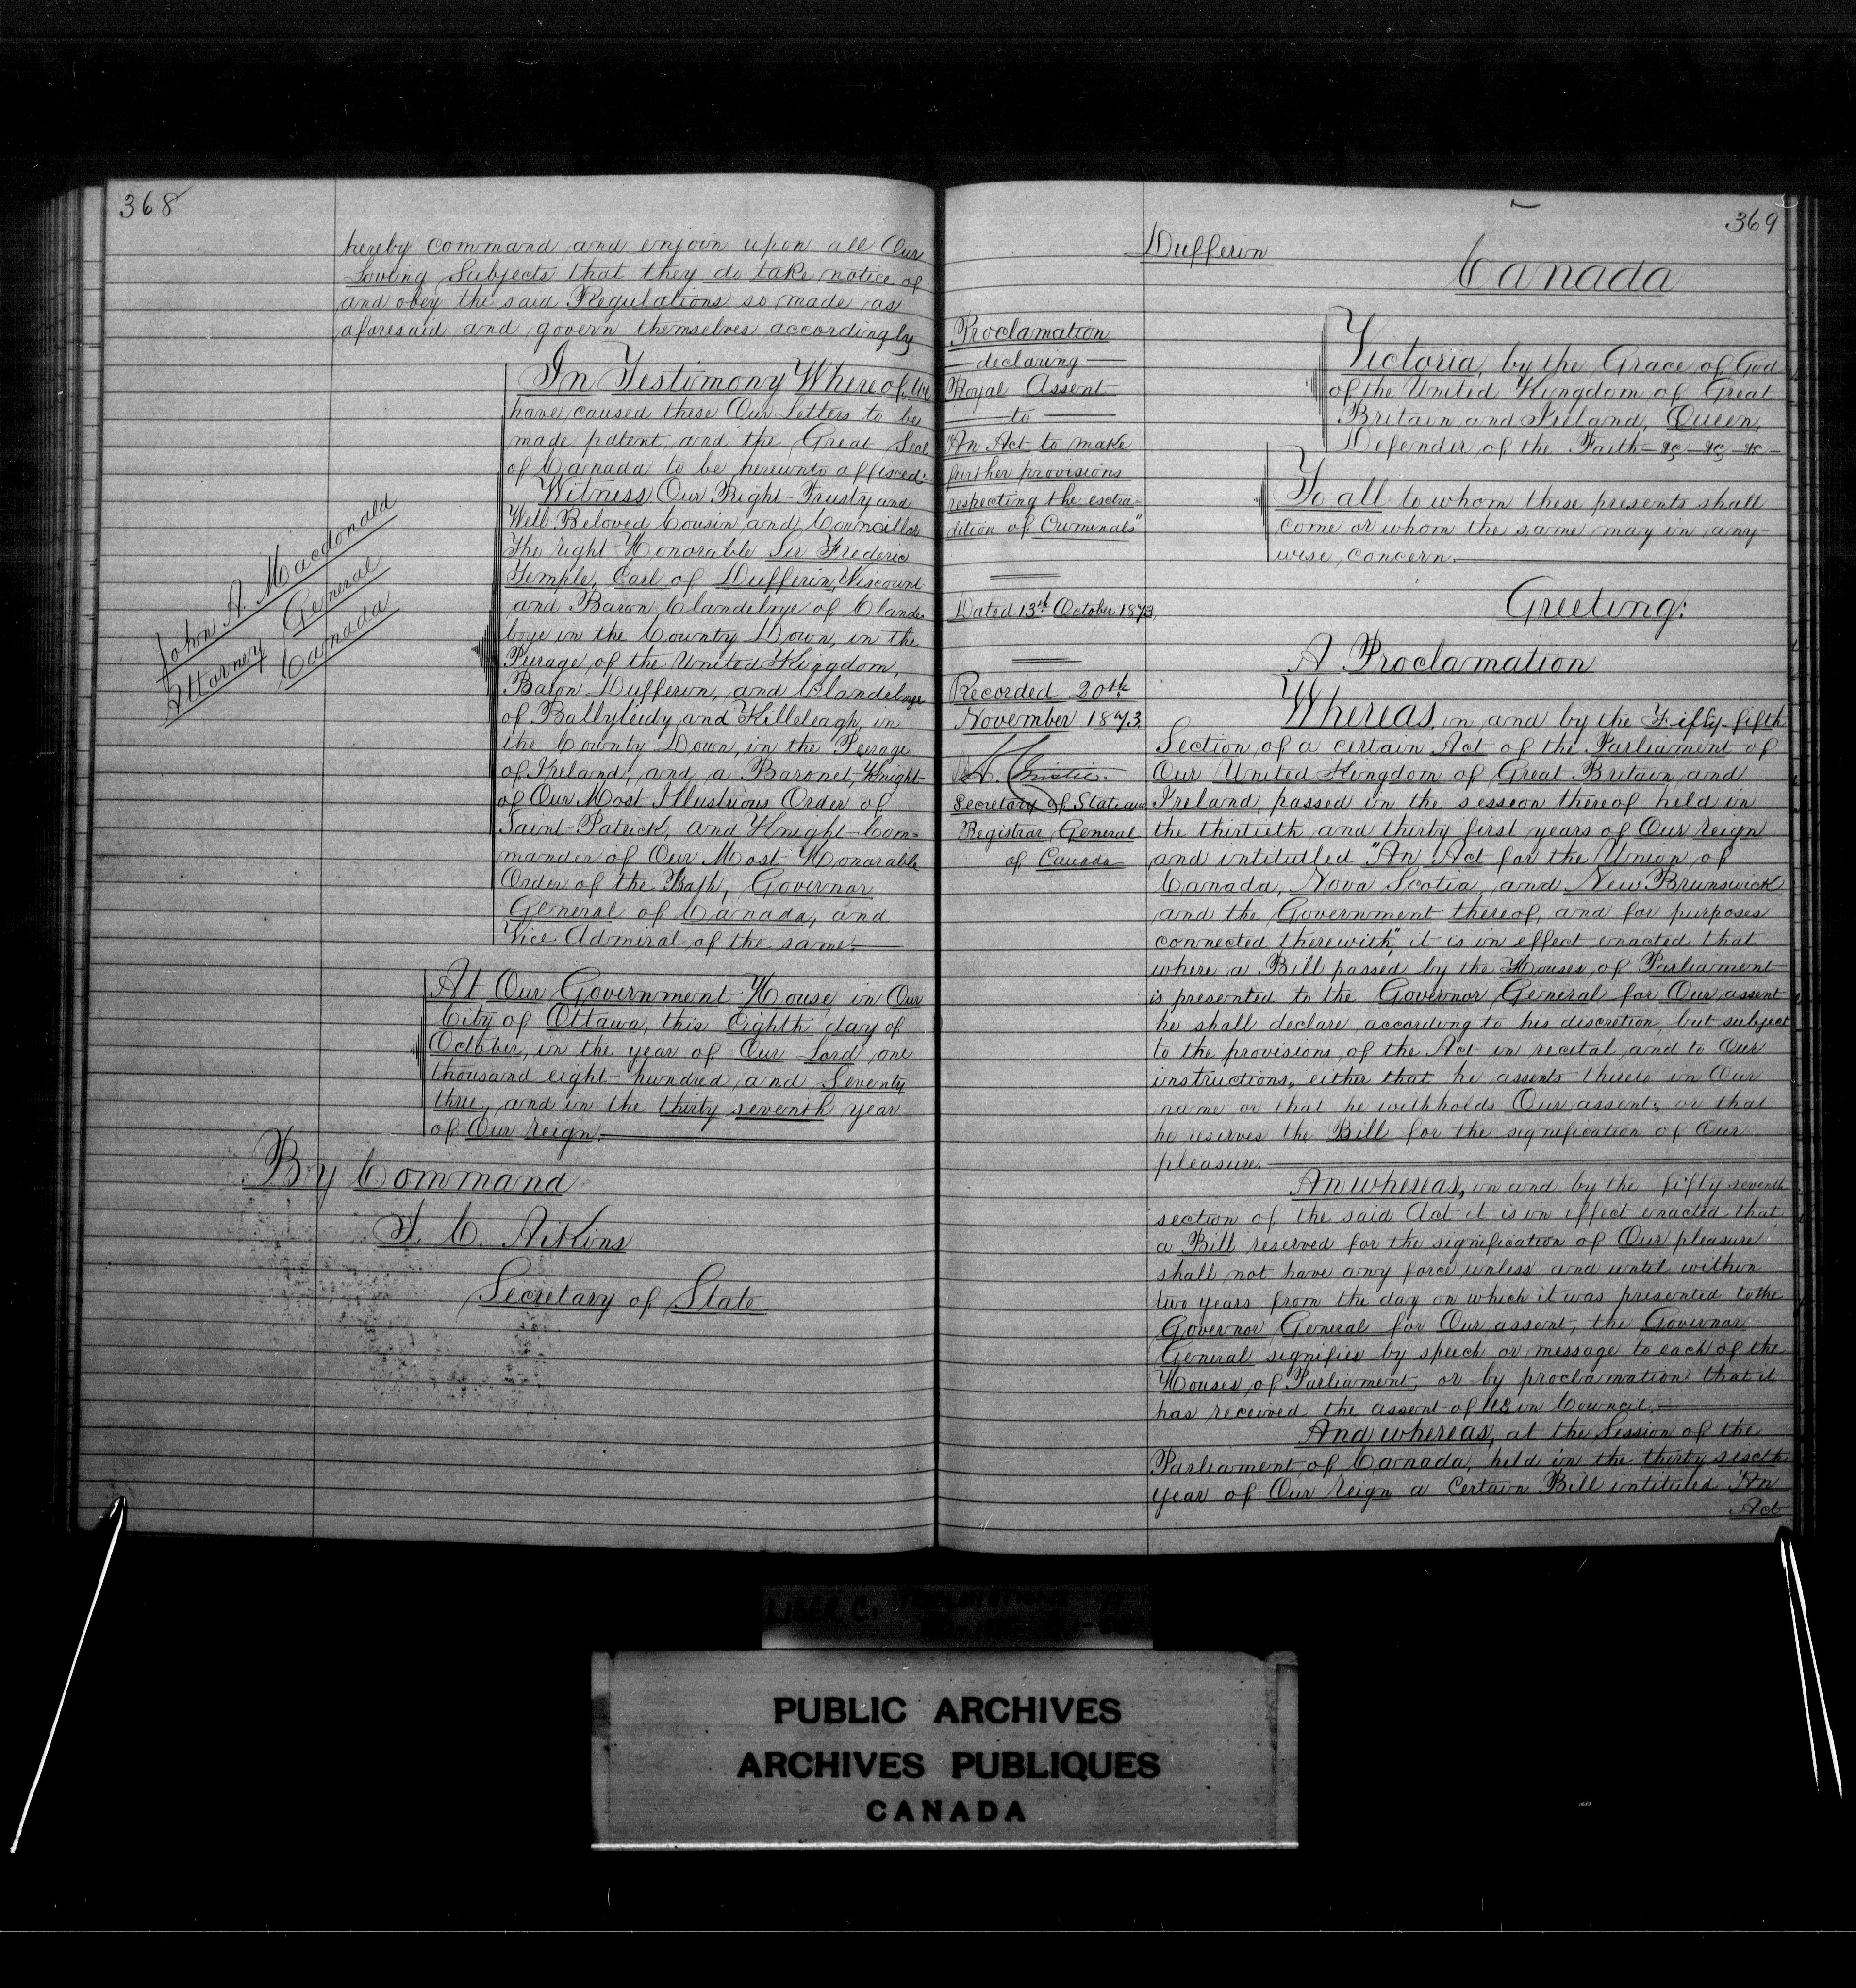 368
hereby command and enjoin upon all Our
Loving Subjects that they do take notice of
and obey the said Regulations so made as
aforesaid and govern themselves accordingly
In Testimony Whereof, We
have caused these Our Letters to be
made patent, and the Great Seal
of Canada to be hereunto affixed:
Witness Our Right Trusty and
Well Beloved Cousin and Councillor
The right Honorable Sir Frederic
Temple, Earl of Dufferin, Viscount
and Baron Clandeboye of Clande-
boye in the County Down, in the
Peerage of the United Kingdom,
Baron Dufferin, and Clandeboye
of Ballyleidy and Killeleagh, in
the County Down, in the Peerage
of Ireland, and a Baronet, Knight
of Our Most Illustrious Order of
Saint Patrick, and Knight Com=
mander of Our Most Honorable
Order of the Bath, Governor
General of Canada, and
Vice Admiral of the same.
John A. Macdonald
Attorney General
Canada
At Our Government House in Our
City of Ottawa, this Eighth day of
October, in the year of Our Lord one
thousand eight hundred and Seventy
three, and in the thirty seventh year
of Our Reign.
By Command
J. C. Aikins
Secretary of State
369
Dufferin
Canada
Proclamation
declaring
Royal Assent
to
An Act to make
further provisions
respecting the extra-
dition of Criminals"
Dated 13th October 1873,
Recorded 20th
November 1873
Secretary of State and
Registrar General
of Canada
Victoria, by the Grace of God
of the United Kingdom of Great
Britain and Ireland, Queen,
Defender of the Faith &c &c &c
To all to whom these presents shall
come or whom the same may in any-
wise, concern.
Greeting:
A Proclamation
Whereas, in and by the Fifty-fifth
Section of a certain Act of the Parliament of
Our United Kingdom of Great Britain and
Ireland, passed in the session thereof held in
the thirtieth and thirty first years of Our reign
and intitulled "An Act for the Union of
Canada, Nova Scotia, and New Brunswick
and the Government thereof, and for purposes
connected therewith", it is in effect enacted that
where a Bill passed by the Houses of Parliament
is presented to the Governor General for Our assent
he shall declare according to his discretion, but subject
to the provisions of the Act in recital and to Our
instructions, either that he assents thereto in Our
name or that he withholds Our assent, or that
he reserves the Bill for the signification of Our
pleasure.
An whereas, in and by the fifty seventh
section of the said Act it is in effect enacted that
a Bill reserved for the signification of Our pleasure
shall not have any force unless and until within
two years from the day on which it was presented to the
Governor General for Our assent, the Governor
General signifies by speech or message to each of the
Houses of Parliament, or by proclamation that it
has received the assent of us in Council.
And whereas, at the Session of the
Parliament of Canada, held in the thirty sixth
year of Our Reign a Certain Bill intituled An
Act
PUBLIC ARCHIVES
ARCHIVES PUBLIQUES
CANADA